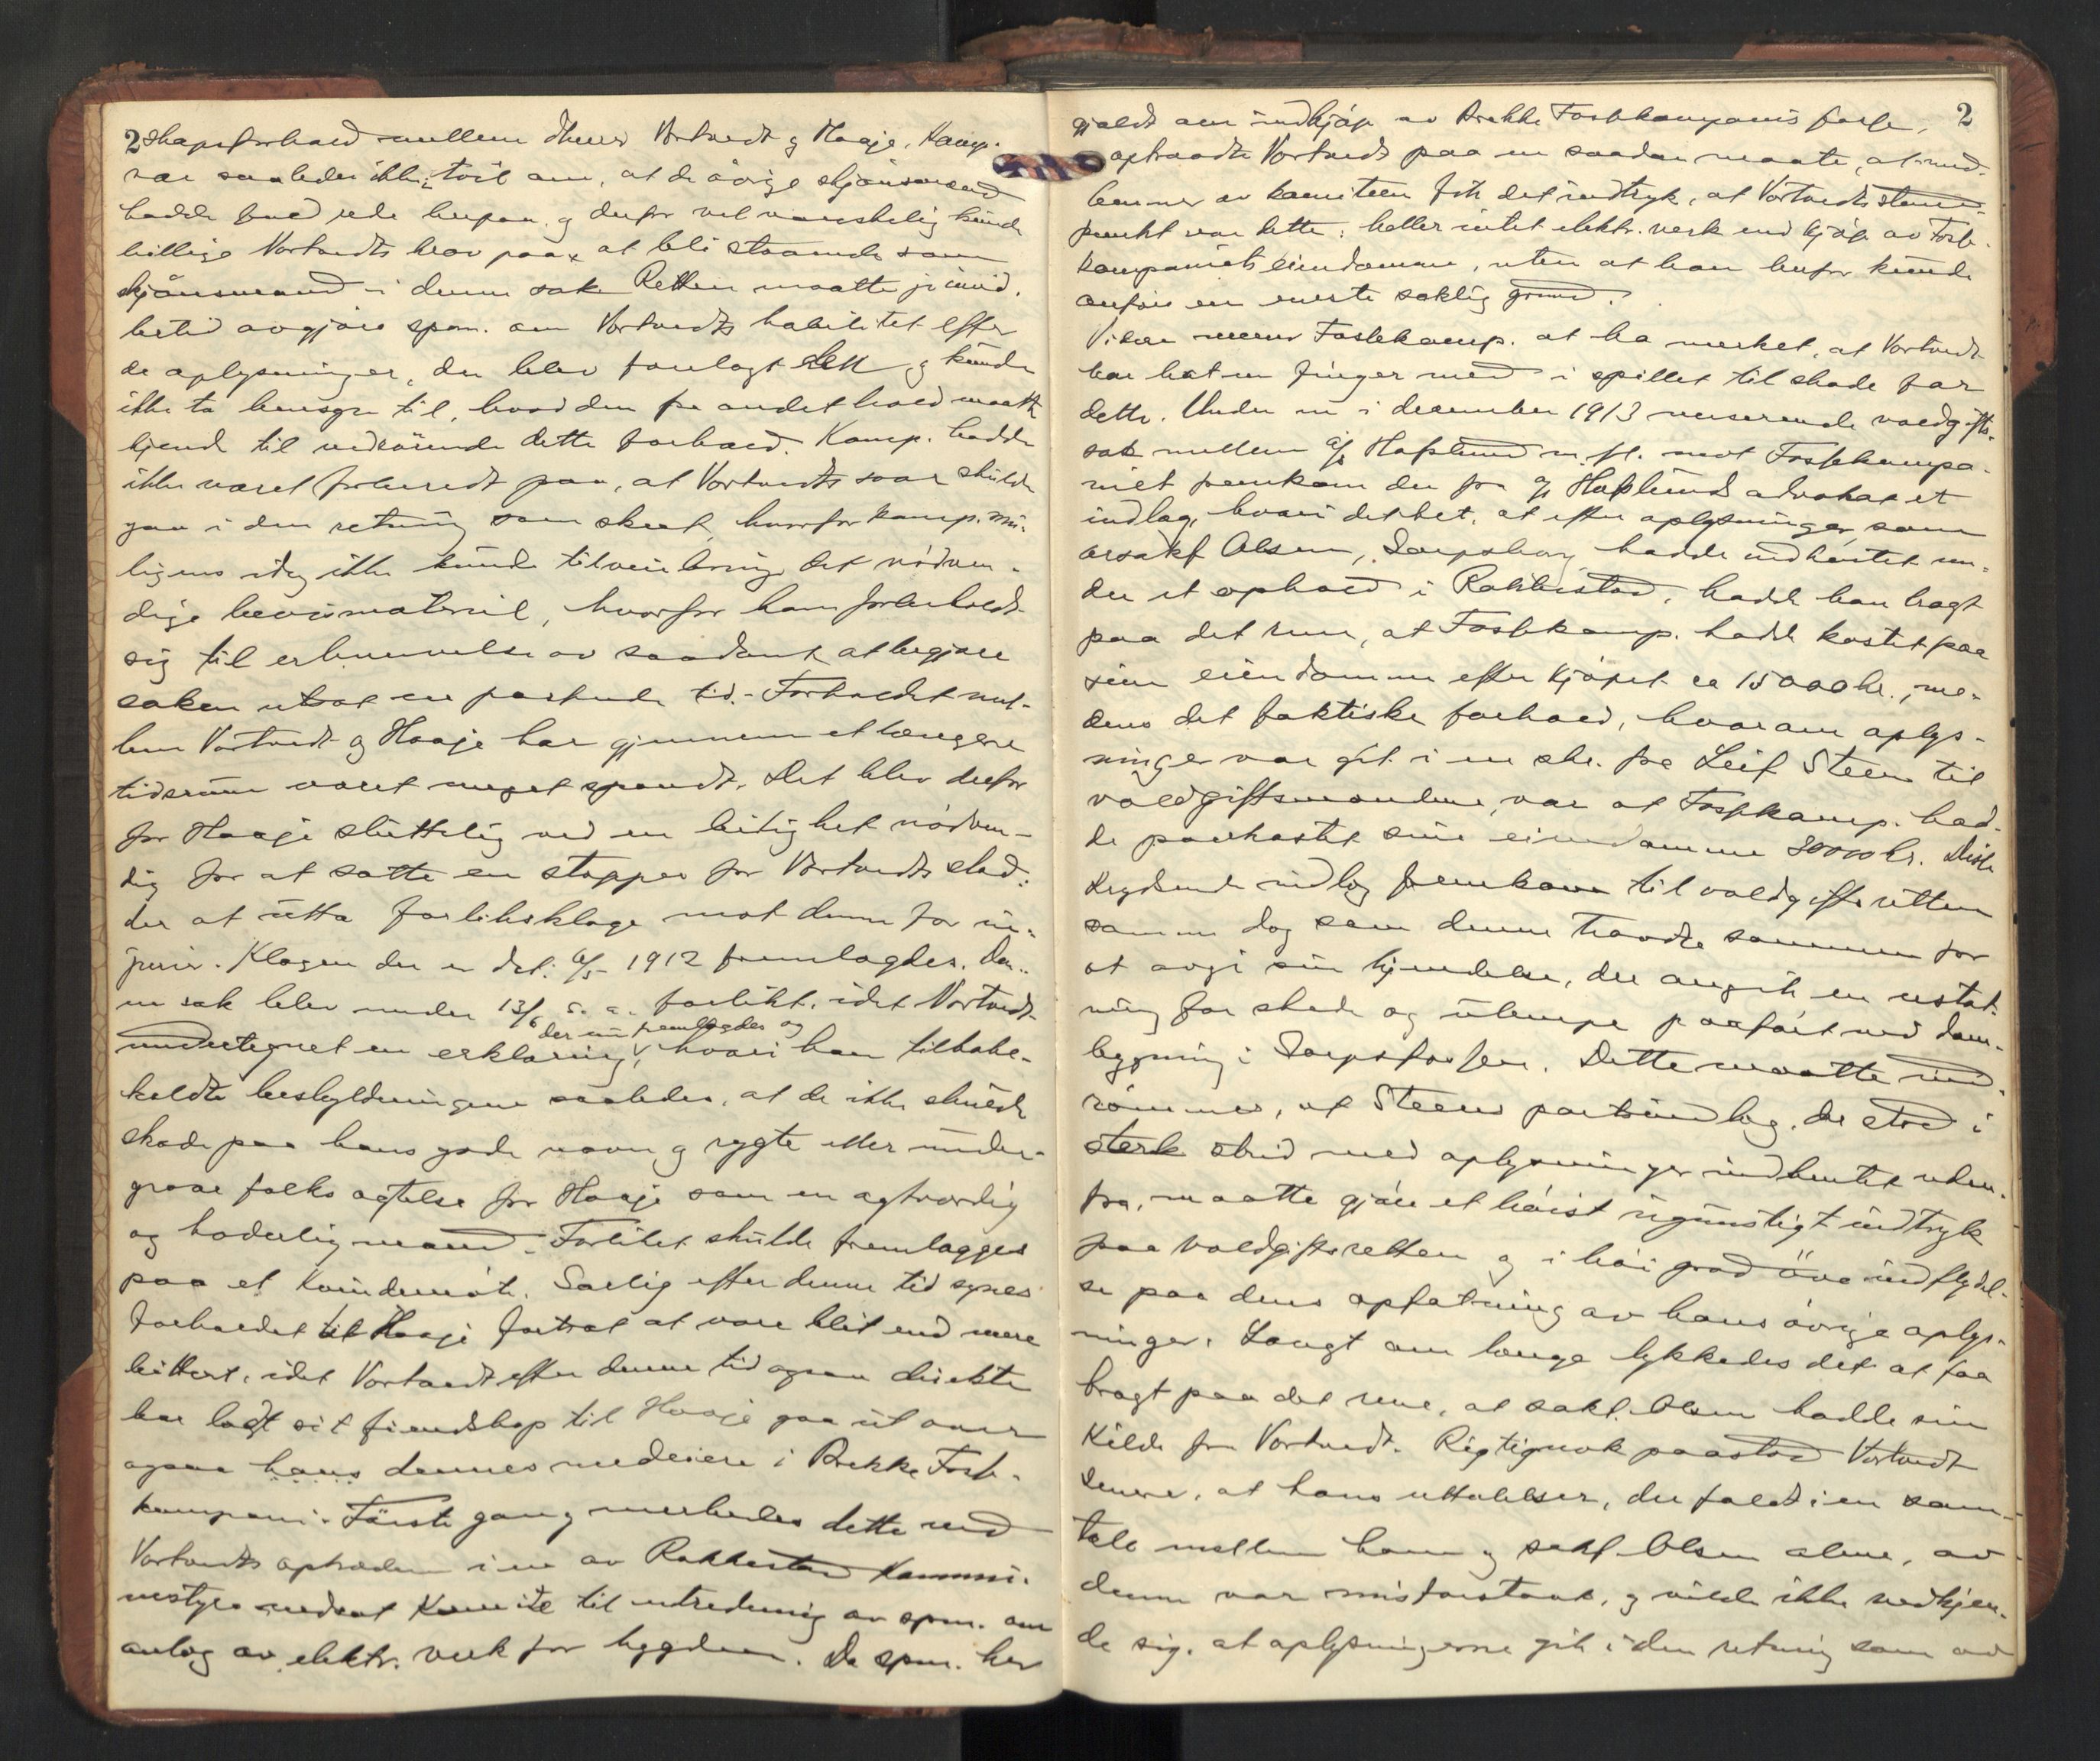 2 skapsforhold mellem dhrr. Vortvedt og Haaje. Komp.
var saaledes ikke i tvil om, at de övrige skjönsmænd
hadde fuld rede herpaa og derfor vel vanskelig kunde
billige Vortvedts krav paa at bli staaende som
skjönsmand i denne sak. Retten maatte jo imid-
lertid avgjöre spm. om Vortvedts habilitet efter
de oplysninger, der blev forelagt den og kunde
ikke ta hensyn til, hvad den fra andet hold maatte
kjende til vedrörende dette forhold. Komp. hadde
ikke været forberedt paa, at Vortvedts svar skulde
gaa i den retning som skeet, hvorfor komp. nu.
ligens idag ikke kunde tilveiebringe det nödven-
dige bevismateriel, hvorfor han forbeholdt
sig til erhvervelse av saadant at begjære
saken utsat en passende tid. - Forholdet mel-
lem Vortvedt og Haaje har gjennem et længere
tidsrum været meget spændt. Det blev derfor
for Haaje sluttelig ved en leilighet nödven-
dig for at sætte en stopper for Vortvedts slad-
der at utta forliksklage mot denne for in-
jurier. Klagen der er dat. 6/5 1912 fremlagdes. Den-
ne sak blev under 13/6 s. a. forlikt, idet Vortvedt
undertegnet en erklæring, der nu fremlagdes og hvori han tilbake-
kaldte beskyldningene saaledes, at de ikke skulde
skade paa hans gode navn og rygte eller under-
grave folks agtelse for Haaje som en agtværdig
og hæderlig mand. Forliket skulde fremlægges
paa et kom̅̅unemöte. Særlig efter denne tid synes
forholdet til Haaje fortsat at være blit end mere
bittert, idet Vortvedt efter denne tid ogsaa direkte
har latt sit fiendskap til Haaje gaa ut over
ogsaa hans dennes medeiere i Brekke Fosse-
kompani. Förste gang merkedes dette ved
Vortvedts optræden i en av Rakkestad kommu-
nestyre nedsat komite til utredning av spm. om
anlæg av elektr. verk for bygden. Da spm. her
2
gjaldt om indkjöp av Brekke Fossekompanis fosse,
optraadte Vortvedt paa en saadan maate, at med-
lemmer av komiteen fik det indtryk, at Vortvedts stand-
punkt var dette: heller intet elektr. verk end kjöp av Fosse-
kompaniets eiendomme, uten at han herfor kunde
anföre en eneste saklig grund.
Videre mener Fossekomp. at ha merket, at Vortvedt
har hat en finger med i spillet til skade for
dette. Under en i desember 1913 verserende voldgifts-
sak mellem A/S Hafslund m. fl. mot Fossekompa-
niet fremkom der fra A/S Hafslunds advokat et
indlæg, hvori det het, at efter oplysninger, som
orsakf. Olsen, Sarpsborg hadde indhentet un-
der et ophold i Rakkestad, hadde han bragt
paa det rene, at Fossekomp. hadde kostet paa
sine eiendomme efter kjöpet ca 15000 kr., me-
dens det faktiske forhold, hvorom oplys-
ninger var git i en skr. fra Leif Steen til
voldgiftsmændene, var at Fossekomp. had-
de paakostet sine eiendomme 80000 kr. Dette
Krydsende indlæg fremkom til voldgiftsretten
samme dag som denne traadte sammen for
at avgi sin kjendelse, der angik en erstat-
ning for skade og ulempe paafört ved dam-
bygning i Sarpsfossen. Dette maatte ind-
römmes, at Steens partsindlæg, der stod i
sterk strid med oplysninger indhentet uten-
fra, maatte gjöre et höist ugunstigt indtryk
paa voldgiftsretten og i höi grad öve indflydel-
se paa dens opfatning av hans övrige oplys-
ninger. Langt om længe lykkedes det at faa
bragt paa det rene, at sakf. Olsen hadde sin
Kilde fra Vortvedt. Rigtignok paastod Vortvedt
senere, at hans uttalelser, der faldt i en sam-
tale mellem ham og sakf Olsen alene, av
denne var misforstaat, og vilde ikke vedkjen-
de sig, at oplysningerne gik i den retning som av